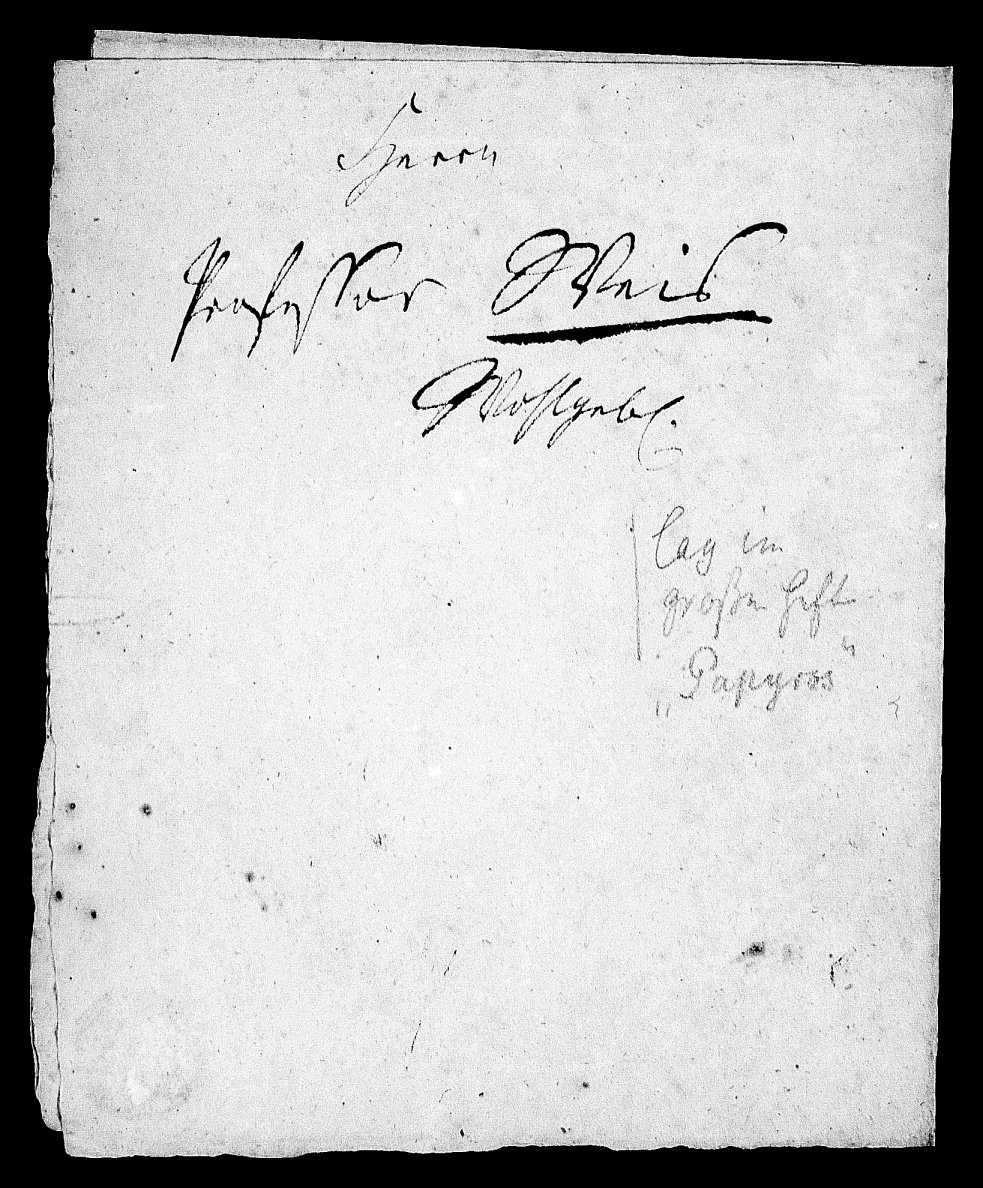 Herrn
Professor Weis
Wohlgeb.
lag im
großen Heft
„Papyros“